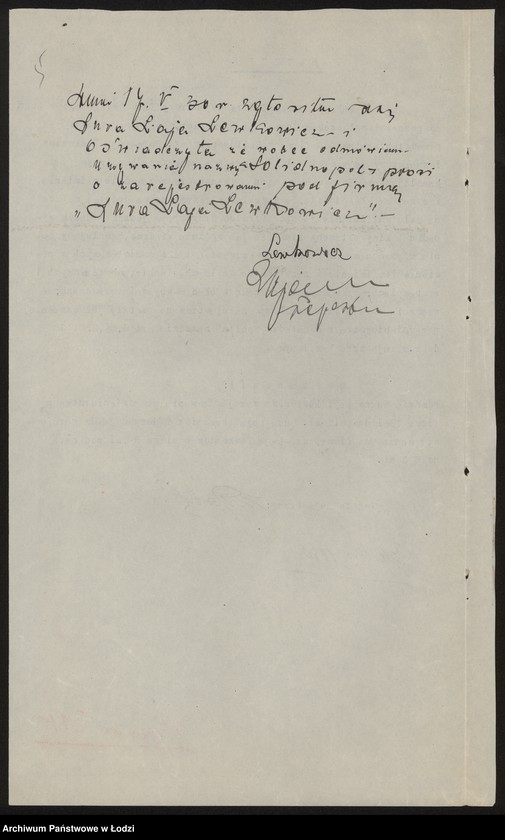 Dnia 17. V 30 r zgłosiła się
Sura Łaja Lewkowicz i
oświadczyła że wobec odmówienia
używania nazwy "Solidnopol" prosi
o zarejestrowanie pod firmą
"Sura Łaja Lewkowicz".—
Lewkowicz
Archiwum Państwowe w Łodzi